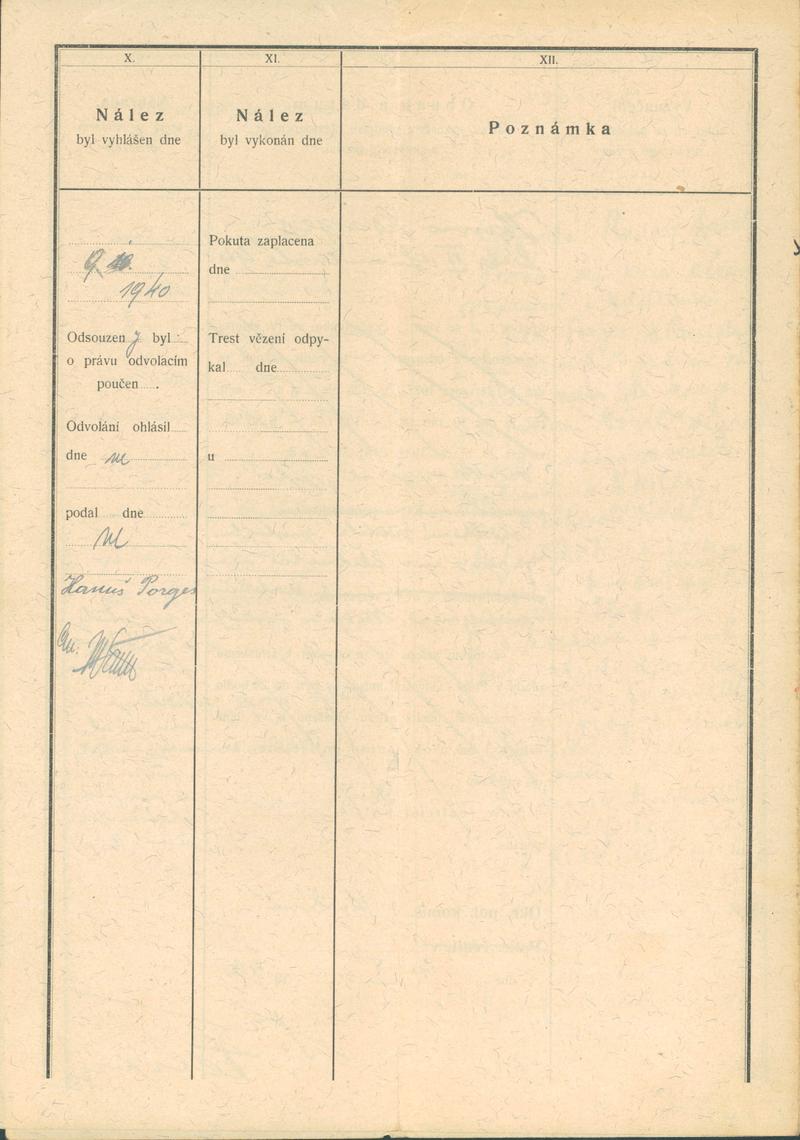 X.
Nález
byl vyhlášen dne
9. 10.
1940
Odsouzen ý byl
o právu odvolacím
poučen .
Odvolání ohlásil
dne
podal dne
Hanuš Porges
XI.
Nález
byl vykonán dne
Pokuta zaplacena
dne
Trest vězení odpy-
kal dne
u
XII.
Poznámka